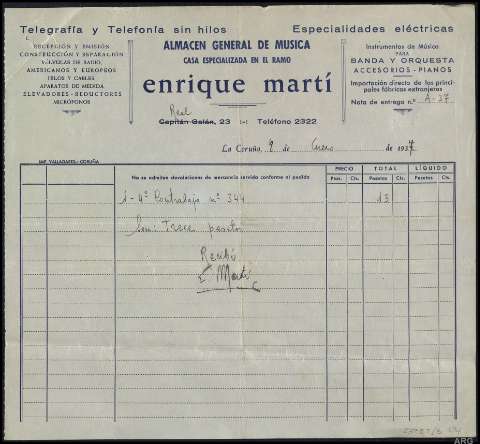 Telegrafía y Telefonía sin hilos
Especialidades eléctricas
RECEPCIÓN Y EMISIÓN
CONSTRUCCIÓN Y REPARACIÓN
VÁLVULAS DE RADIO,
AMERICANOS Y EUROPEOS
HILOS Y CABLES
APARATOS DE MEDIDA
ELEVADORES - REDUCTORES
MICRÓFONOS
ALMACEN GENERAL DE MUSICA
CASA ESPECIALIZADA EN EL RAMO
enrique martí
Real
Capitán Galán, 23 Teléfono 2322
Instrumentos de Música
PARA
BANDA Y ORQUESTA
ACCESORIOS - PIANOS
Importación directa de las principales
fábricas extranjeras
Nota de entrega n.º A-37
La Coruña, 9 de Enero de 1937
IMP. VALLADARES-CORUÑA
No se admiten devoluciones de mercancía servida conforme al pedido
PRECIO TOTAL LÍQUIDO
Ptas. Cts. Pesetas Cts. Pesetas Cts.
1 - 4ª Contrabajo nº 344 13
Son: Trece pesetas
Recibí
E. Martí
ARG